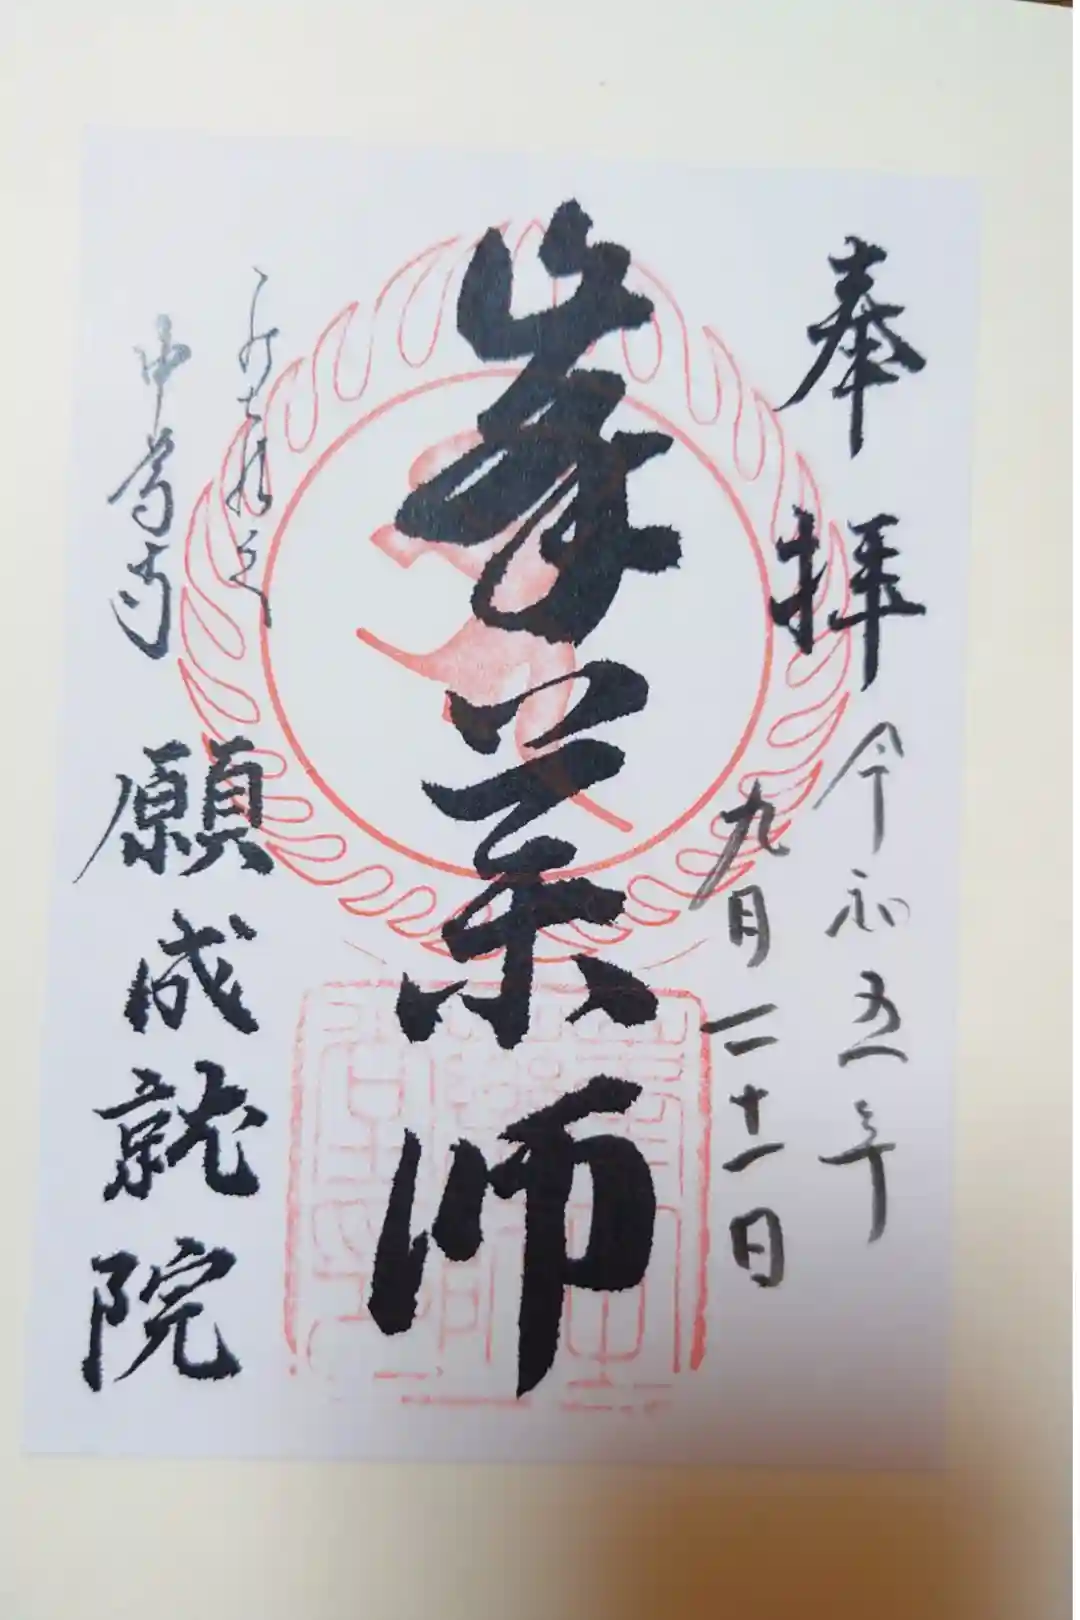 奉拝
令和五年
九月二十一日
峯薬師
中尊寺
願成就院